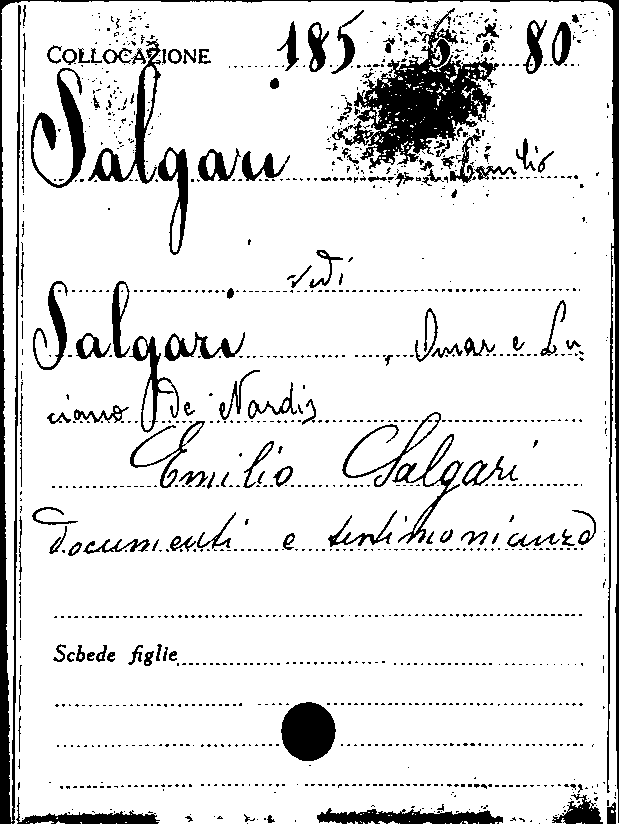 COLLOCAZIONE 185 . 6 . 80
Salgari Emilio
vedi
Salgari , Omar e Lu-
ciano De Nardis
Emilio Salgari
documenti e testimonianze
Schede figlie